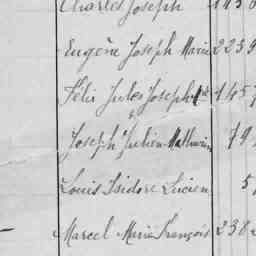 Charles Joseph
Eugène Joseph Marie 2239
Félix Jules Joseph 1457
Joseph Julien Mathurin 79
Louis Isidore Lucien 5
Marcel Marie François 238